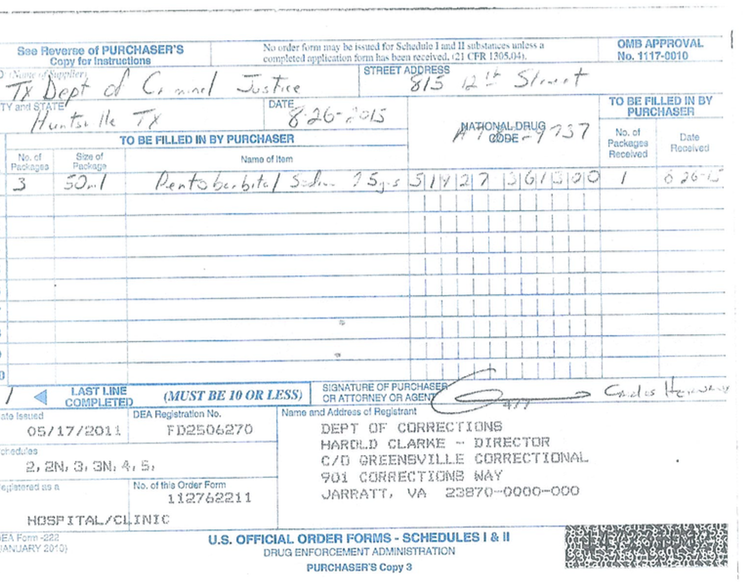 See Reverse of PURCHASER'S
Copy for Instructions
No order form may be issued for Schedule I and II substances unless a
completed application form has been received, (21 CFR 1305.04).
OMB APPROVAL
No. 1117-0010
(Name of Supplier)
TX Dept of Criminal Justice
STREET ADDRESS
815 12th Street
TY and STATE
Huntsville TX
DATE
8-26-2015
TO BE FILLED IN BY
PURCHASER
TO BE FILLED IN BY PURCHASER
NATIONAL DRUG
CODE
No. of
Packages
Size of
Package
Name of Item
No. of
Packages
Received
Date
Received
3 50ml Pentobarbital 1 26-15
LAST LINE
COMPLETED
(MUST BE 10 OR LESS)
SIGNATURE OF PURCHASER
OR ATTORNEY OR AGENT
ate Issued
05/17/2011
DEA Registration No.
FD2506270
Name and Address of Registrant
DEPT OF CORRECTIONS
HAROLD CLARKE - DIRECTOR
C/O GREENSVILLE CORRECTIONAL
901 CORRECTIONS WAY
JARRATT, VA 23870-0000-000
chedules
2, 2N, 3, 3N, 4, 5,
egistered as a
HOSPITAL/CLINIC
No. of this Order Form
112762211
EA Form -222
JANUARY 2010)
U.S. OFFICIAL ORDER FORMS - SCHEDULES I & II
DRUG ENFORCEMENT ADMINISTRATION
PURCHASER'S Copy 3